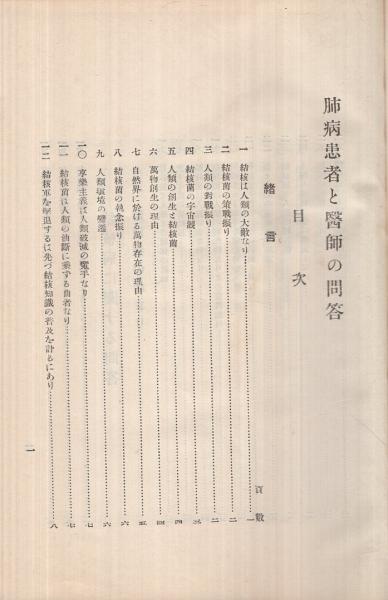 肺病患者と醫師の問答
目次
頁數
緒言
一 結核は人類の大敵なり……一
二 結核菌の策戰振り……二
三 人類の對戰振り……二
四 結核菌の宇宙觀……三
五 人類の創生と結核菌……四
六 萬物創生の理由……四
七 自然界に於ける萬物存在の理由……五
八 結核菌の執念振り……六
九 人類墳墓の……六
一〇 享樂主義は人類破滅の魔手なり……七
一一 結核菌は人類の油斷に乘ずる曲者なり……七
一二 結核軍を擊退するは先づ結核知識の普及を計るにあり……八
一